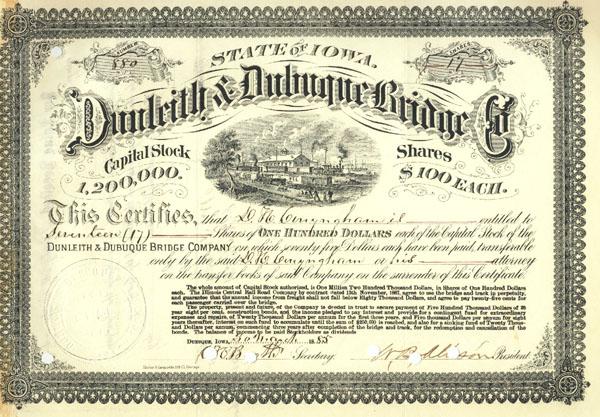 NUMBER
880
SHARES
17
STATE OF IOWA.
Dunleith & Dubuque Bridge Co
Capital Stock
1,200,000.
Shares
$100 EACH.
This Certifies, that D. H. is entitled to
Seventeen (17) Shares of ONE HUNDRED DOLLARS each of the Capital Stock of the
DUNLEITH & DUBUQUE BRIDGE COMPANY on which seventy five Dollars each have been paid, transferable
only by the said D. H. or his attorney
on the transfer books of said Company on the surrender of this Certificate.
The whole amount of Capital Stock authorized, is One Million Two Hundred Thousand Dollars, in Shares of One Hundred Dollars
each. The Illinois Central Rail Road Company by contract dated 13th November, 1867, agree to use the bridge and track in perpetuity,
and guarantee that the annual income from freight shall not fall below Eighty Thousand Dollars, and agree to pay twenty-five cents for
each passenger carried over the bridge.
The property, present and future, of the Company is deeded in trust to secure payment of Five Hundred Thousand Dollars of 25
year eight per cent. construction bonds, and the income pledged to pay interest and provide for a contingent fund for extraordinary
expenses and repairs, of Twenty Thousand Dollars per annum for the first three years, and Five Thousand Dollars per annum for eight
years thereafter, interest on such fund to accumulate until the sum of $250,000 is reached, and also for a sinking fund of Twenty Thous-
and Dollars per annum, commencing three years after completion of the bridge and track, for the redemption and cancellation of the
bonds. The balance of income to be paid Stockholders as dividends
DUBUQUE, IOWA, March 1885
Secretary. President